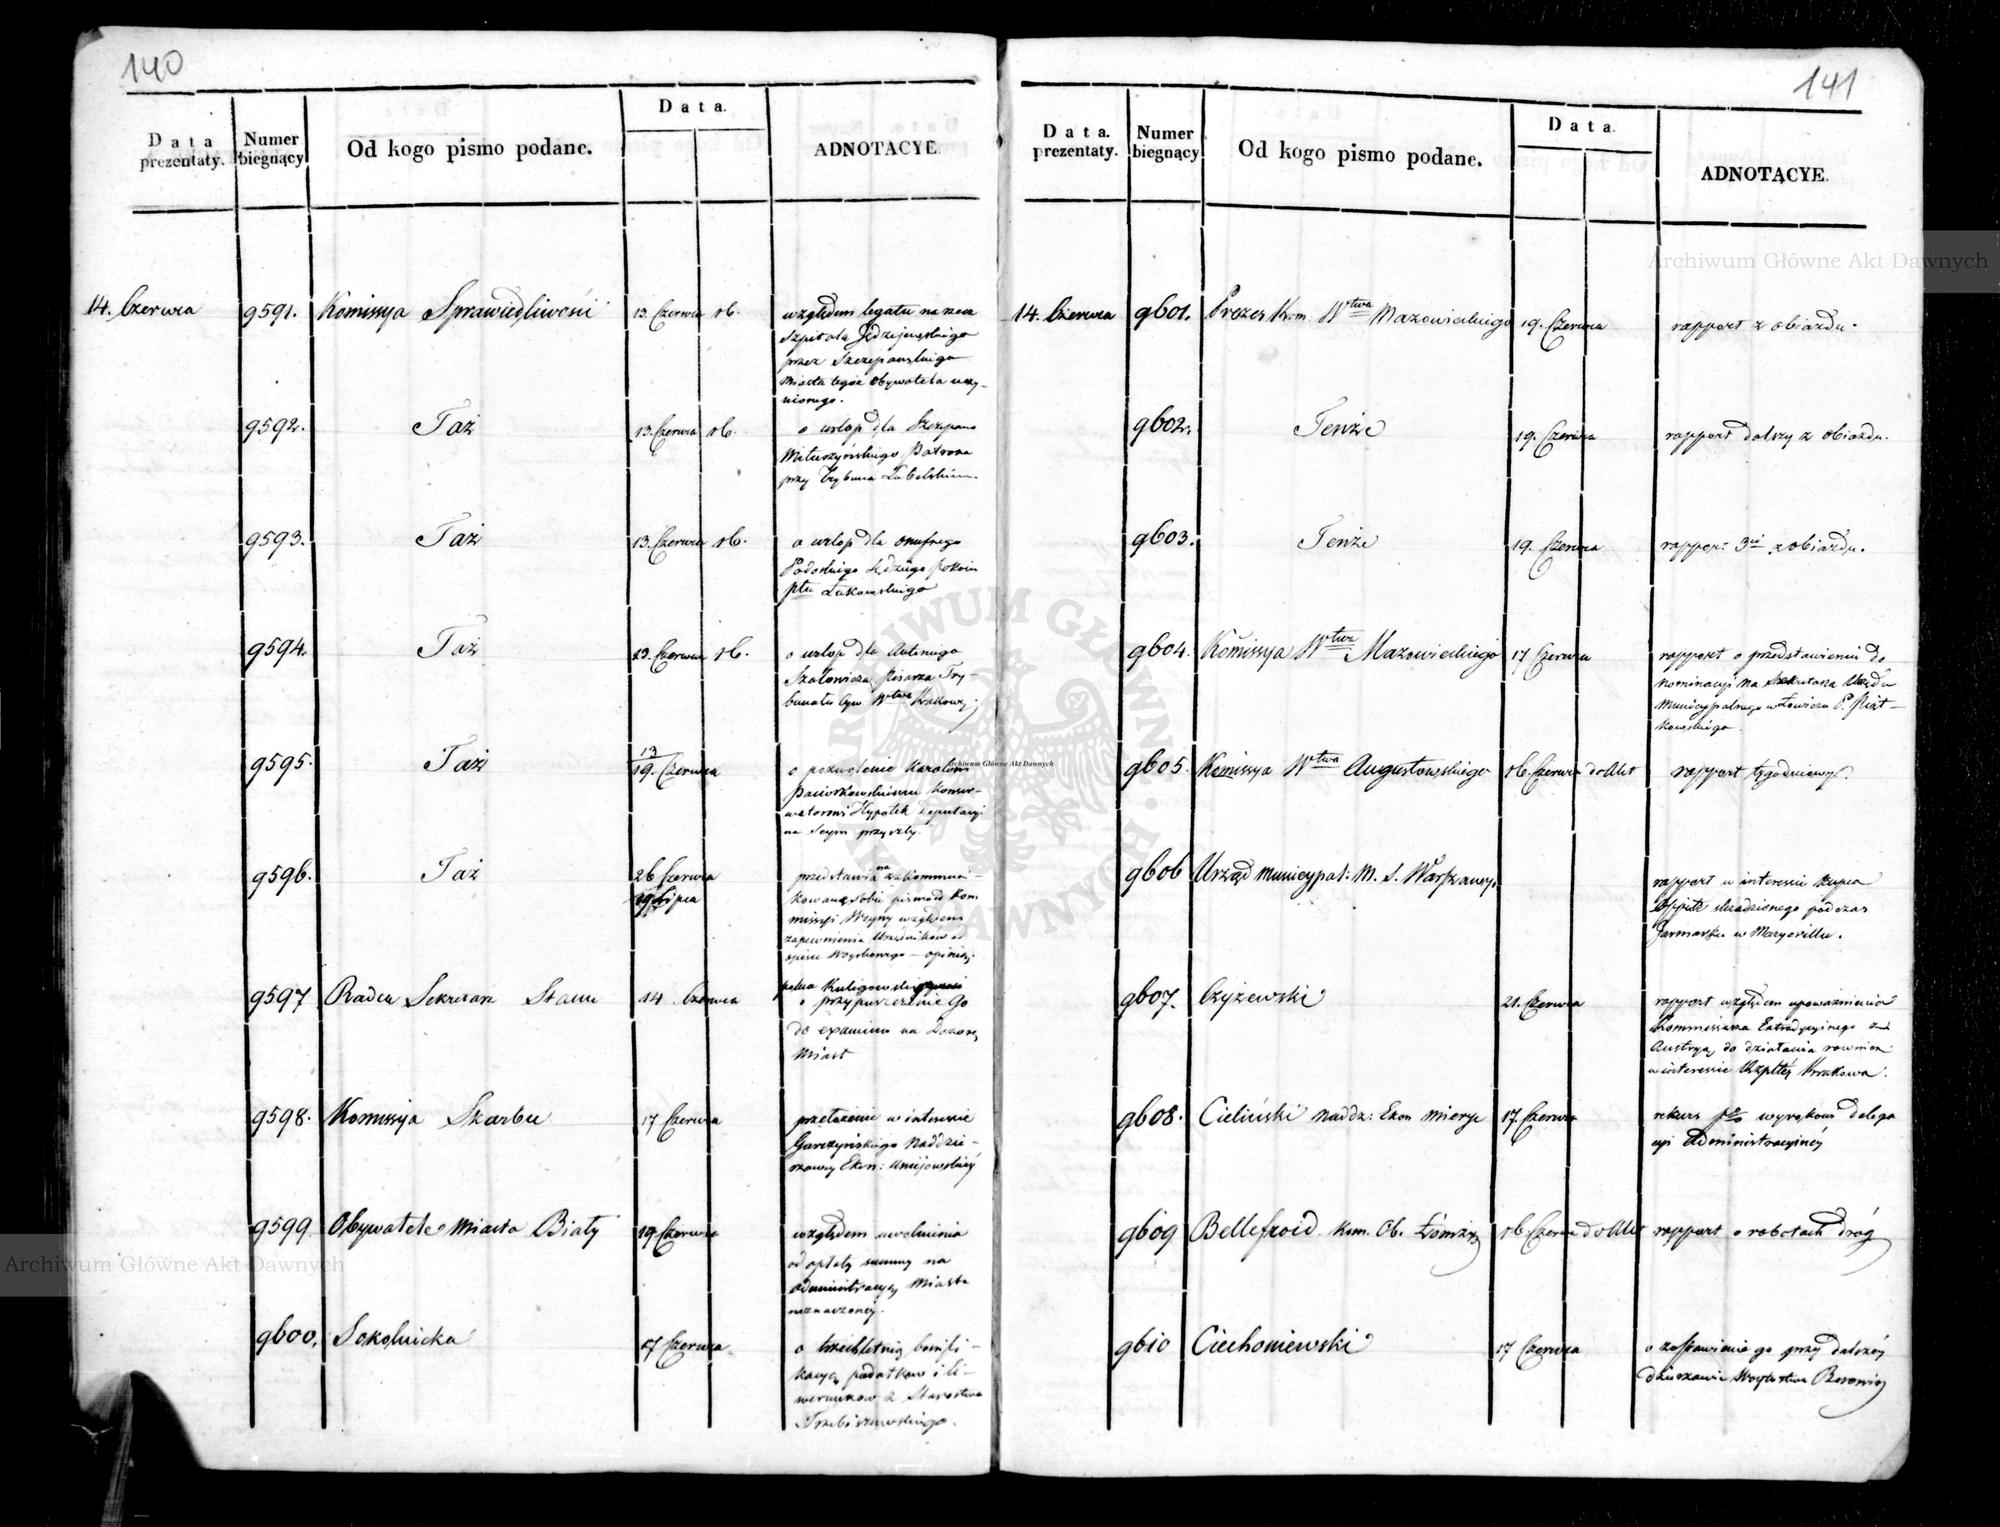 140
Data prezentaty.
Numer biegnący
Od kogo pismo podane.
Data.
ADNOTACYE.
14. Czerwca
9591.
Komissya Sprawiedliwości
13. Czerwca 16.
względem legatu na rzecz
Szpitala Jędrzejewskiego
przez Szczepańskiego
Miasta tegoż Obywatela uczy-
nionego.
9592.
Taż
13. Czerwca 16.
o urlop dla Szczepana
Patrona
przy Trybuna Lubelskim.
9593.
Taż
13. Czerwca 16.
o urlop dla Onufrego
Sędziego Pokoiu
Ptu Łukowskiego
9594.
Taż
13. Czerwca 16.
o urlop dla Antoniego
Pisarza Try-
bunału Cyw. Wtwa Krakows;
9595.
Taż
13
19. Czerwca
o pozwolenie Karolowi
Paciorkowskiemu Konser-
watorowi Hypotek Deputacyi
na Seym przyszły.
9596.
Taż
26 Czerwca
19 Lipca
przedstawia na zakommuni-
kowane sobie pismo od Kom
missyi Woyny względem
zapewnienia Urzędników od
spisu Woyskowego – opinią;
9597
Radca Sekretarz Stanu
14 Czerwca
o przypuszczenie Go
do examinu na Dozorcę
Miast
9598.
Komissya Skarbu
17 Czerwca
przełożenie w interessie
Garczyńskiego Naddzie-
rzawcy Ekon: Uniejowskiey
9599.
Obywatele Miasta Biały
19 Czerwca
względem uwolnienia
od opłaty summy na
administracyą Miasta
naznaczoney.
9600.
Sokolnicka
17 Czerwca
o trzechletnią bonifi-
kacyą podatkow i li-
werunkow z Starostwa
Trzebiszewskiego.
141
Data. prezentaty.
Numer biegnący
Od kogo pismo podane.
Data.
ADNOTACYE.
14. Czerwca
9601.
Prezes Kom. Wtwa Mazowieckiego
19. Czerwca
rapport z obiazdu.
9602.
Tenże
19. Czerwca
rapport dalszy z obiazdu.
9603.
Tenże
19. Czerwca
rapport 3ci z obiazdu.
9604.
Komissya Wtwa Mazowieckiego
17 Czerwca
rapport o przedstawieniu do
nominacyi na Sekretarza Urzędu
Municypalnego w Łowiczu P. Piąt-
kowskiego.
9605.
Komissya Wtwa Augustowskiego
16. Czerwca do Akt
rapport tygodniowy.
9606
Urząd Municypal: M. S. Warszawy.
rapport w interessie kupca
okradzionego podczas
Jarmarku w Maryvillu.
9607.
Czyżewski
21. Czerwca
rapport względem upoważnienia
Kommissarza Extradycyinego z
Austryą, do działania rownież
w interessie Rzpltey Krakowa.
9608.
Cieliński Naddz: Ekon
17. Czerwca
rekurs pko wyrokowi delega
cyi administracyiney
9609
Bellefroid Kom. Ob. Łomży
16 Czerwca do Akt
rapport o robotach dróg
9610
Ciechoniewski
17 Czerwca
o zostawienie go przy dalszey
dzierzawie Woytostwa
Archiwum Główne Akt Dawnych
Archiwum Główne Akt Dawnych
Archiwum Główne Akt Dawnych
ARCHIWUM GŁÓWNE AKT DAWNYCH